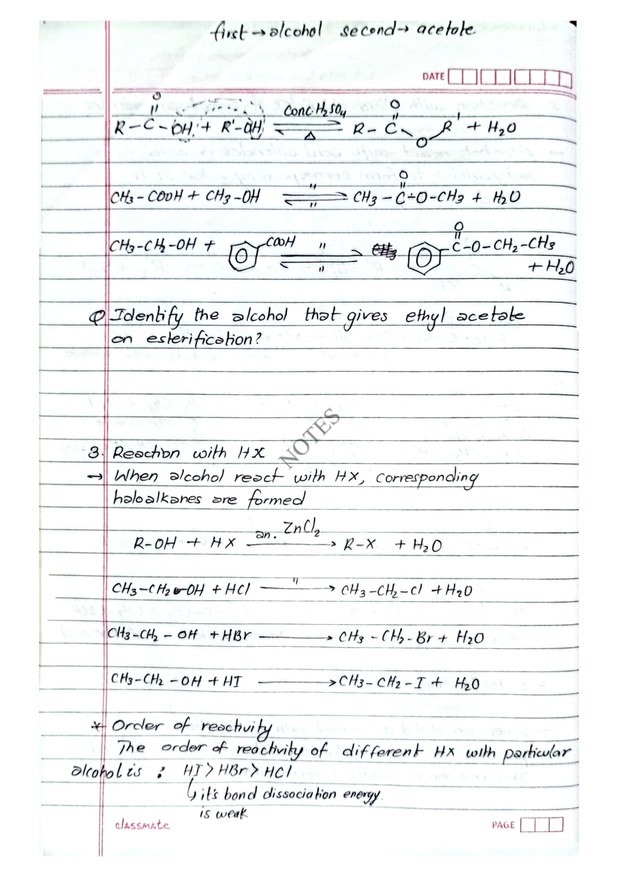 first → alcohol second → acetate
DATE
O
R - C - OH + R' - OH ⇌ Conc. H₂SO₄ Δ R - C - O - R' + H₂O
O
CH₃ - COOH + CH₃ - OH ⇌ " " CH₃ - C - O - CH₃ + H₂O
O
CH₃ - CH₂ - OH + COOH ⇌ " " C - O - CH₂ - CH₃
O
+ H₂O
Q Identify the alcohol that gives ethyl acetate
on esterification?
NOTES
3. Reaction with HX
→ When alcohol react with HX, corresponding
haloalkanes are formed
R - OH + HX an. ZnCl₂ → R - X + H₂O
CH₃ - CH₂ - OH + HCl " → CH₃ - CH₂ - Cl + H₂O
CH₃ - CH₂ - OH + HBr → CH₃ - CH₂ - Br + H₂O
CH₃ - CH₂ - OH + HI → CH₃ - CH₂ - I + H₂O
* Order of reactivity
The order of reactivity of different HX with particular
alcohol is : HI > HBr > HCl
↳ it's bond dissociation energy
is weak
classmate
PAGE